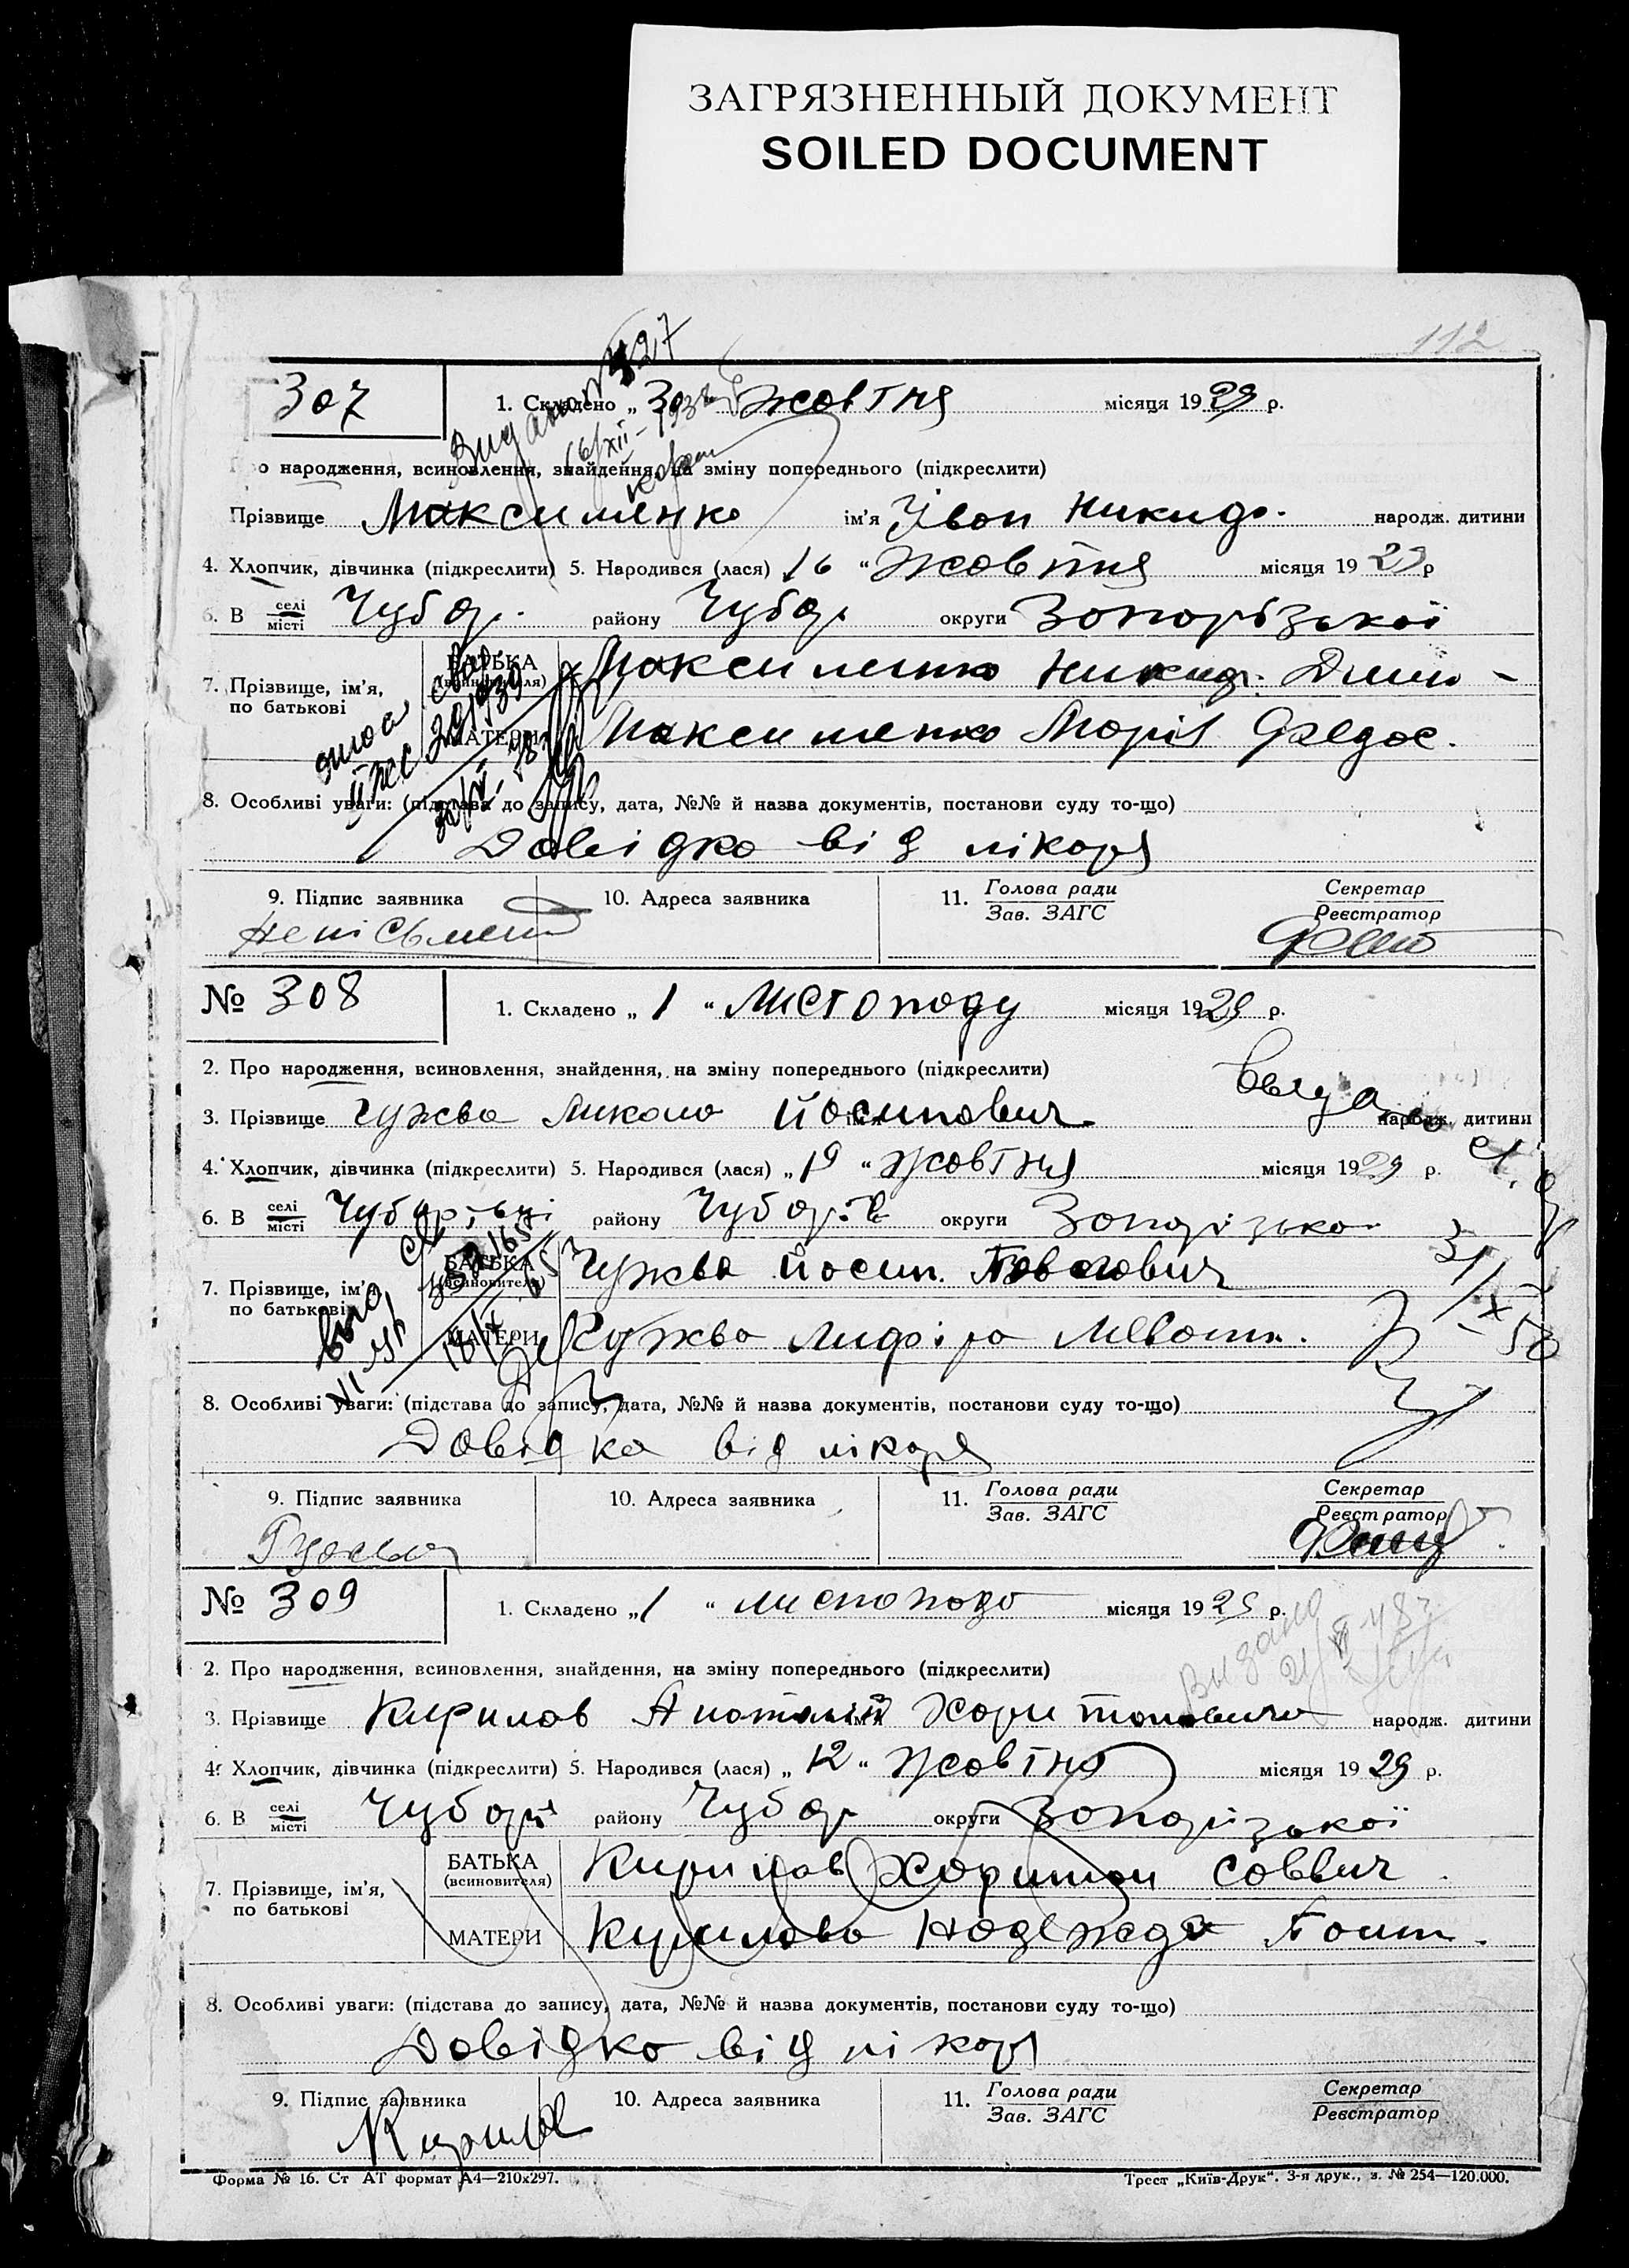 ЗАГРЯЗНЕННЫЙ ДОКУМЕНТ
SOILED DOCUMENT
112
307
1. Складено „ 30 жовтня місяця 1929 р.
о народження, всиновлення, знайдення, на зміну попереднього (підкреслити)
Прізвище Максименко ім'я Іван Никид. народж. дитини
4. Хлопчик, дівчинка (підкреслити) 5. Народився (лася) 16 “ жовтня місяця 1929 р
6. В селі місті Чубар. району Чубар округи Запорізької
7. Прізвище, ім'я, по батькові
БАТЬКА (всиновителя) Максименко Никид. Дмит-
МАТЕРИ Максименко Марія Федос.
8. Особливі уваги: (підстава до запису, дата, №№ й назва документів, постанови суду то-що)
Довідка від лікаря
9. Підпис заявника 10. Адреса заявника 11. Голова ради Зав. ЗАГС Секретар Реєстратор
№ 308
1. Складено „ 1 “ Листопаду місяця 1929 р.
2. Про народження, всиновлення, знайдення, на зміну попереднього (підкреслити)
3. Прізвище Гужва Микола Йосипович ім'я народж. дитини
4. Хлопчик, дівчинка (підкреслити) 5. Народився (лася) „ 19 “ жовтня місяця 1929 р.
6. В селі місті Чубарівці району Чубарів округи Запорізько.
7. Прізвище, ім'я, по батькові
БАТЬКА (всиновителя) Гужва Йосип. Павлович
МАТЕРИ Гужва
8. Особливі уваги: (підстава до запису, дата, №№ й назва документів, постанови суду то-що)
Довідка від лікаря
9. Підпис заявника 10. Адреса заявника 11. Голова ради Зав. ЗАГС Секретар Реєстратор
№ 309
1. Складено „ 1 “ листопадо місяця 1929 р.
2. Про народження, всиновлення, знайдення, на зміну попереднього (підкреслити)
3. Прізвище Кирилов Анатолій ім'я Харитонович народж. дитини
4. Хлопчик, дівчинка (підкреслити) 5. Народився (лася) „ 12 “ жовтня місяця 1929 р.
6. В селі місті Чубарі району Чубар округи Запорізької
7. Прізвище, ім'я, по батькові
БАТЬКА (всиновителя) Кирилов Харитон Саввич
МАТЕРИ Кирилова Надежда
8. Особливі уваги: (підстава до запису, дата, №№ й назва документів, постанови суду то-що)
Довідко від лікаря
9. Підпис заявника 10. Адреса заявника 11. Голова ради Зав. ЗАГС Секретар Реєстратор
Кирилов
Форма № 16. Ст АТ формат А4—210х297. Трест „Київ-Друк“. 3-я друк., з. № 254—120.000.